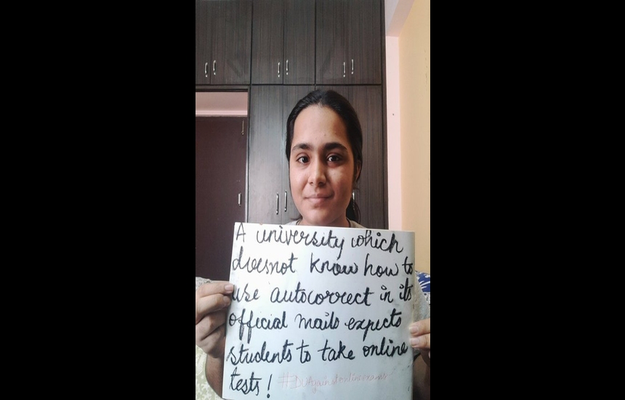 A university which
doesnot know how to
use autocorrect in its
official mails expects
students to take online
tests!